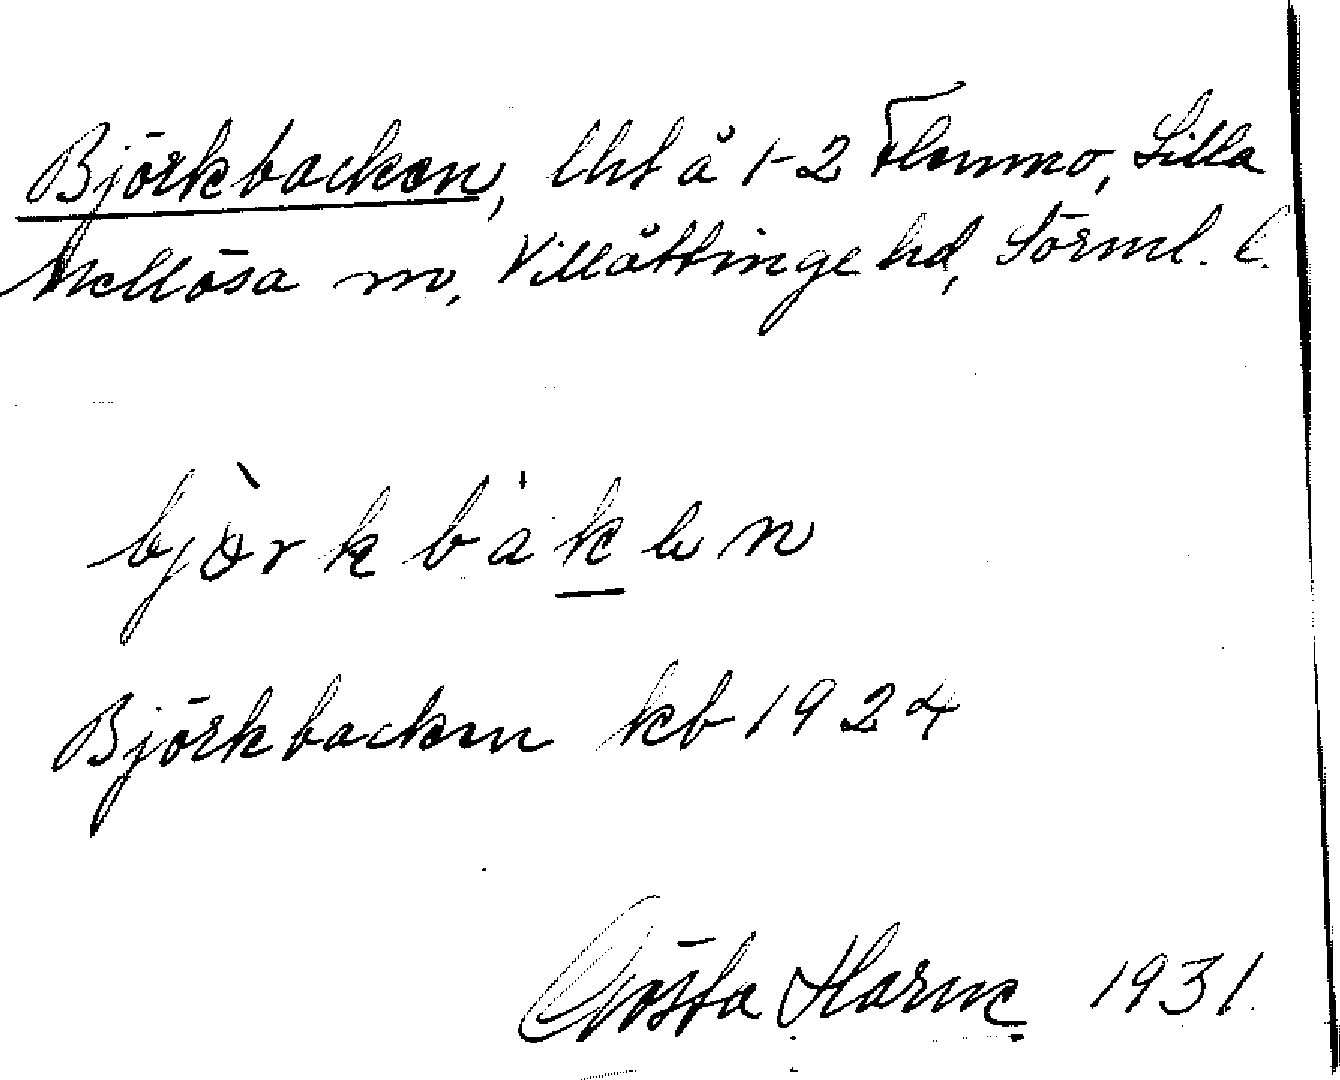 Björkbacken, lht å 1-2 Flenmo, Lilla
Mellösa sn, Villåttinge hd, Sörml. l.
björkbaken
Björkbacken kb 1924
Gösta Harne 1931.